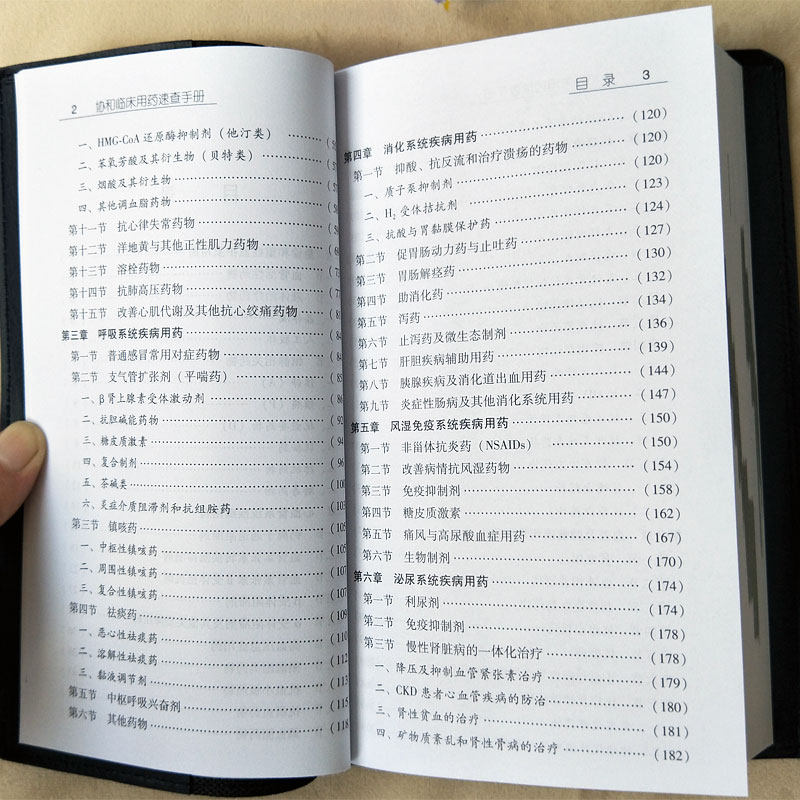 2 协和临床用药速查手册
一、HMG-CoA 还原酶抑制剂（他汀类）
二、苯氧芳酸及其衍生物（贝特类）
三、烟酸及其衍生物
四、其他调血脂药物
第十一节 抗心律失常药物
第十二节 洋地黄与其他正性肌力药物
第十三节 溶栓药物
第十四节 抗肺高压药物
第十五节 改善心肌代谢及其他抗心绞痛药物
第三章 呼吸系统疾病用药
第一节 普通感冒常用对症药物
第二节 支气管扩张剂（平喘药）
一、β肾上腺素受体激动剂
二、抗胆碱能药物
三、糖皮质激素
四、复合制剂
五、茶碱类
六、炎症介质阻滞剂和抗组胺药
第三节 镇咳药
一、中枢性镇咳药
二、周围性镇咳药
三、复合性镇咳药
第四节 祛痰药
一、恶心性祛痰药
二、溶解性祛痰药
三、黏液调节剂
第五节 中枢呼吸兴奋剂
第六节 其他药物
目录 3
第四章 消化系统疾病用药 （120）
第一节 抑酸、抗反流和治疗溃疡的药物 （120）
一、质子泵抑制剂 （120）
二、H₂ 受体拮抗剂 （123）
三、抗酸与胃黏膜保护药 （124）
第二节 促胃肠动力药与止吐药 （127）
第三节 胃肠解痉药 （130）
第四节 助消化药 （132）
第五节 泻药 （134）
第六节 止泻药及微生态制剂 （136）
第七节 肝胆疾病辅助用药 （139）
第八节 胰腺疾病及消化道出血用药 （144）
第九节 炎症性肠病及其他消化系统用药 （147）
第五章 风湿免疫系统疾病用药 （150）
第一节 非甾体抗炎药（NSAIDs） （150）
第二节 改善病情抗风湿药物 （154）
第三节 免疫抑制剂 （158）
第四节 糖皮质激素 （162）
第五节 痛风与高尿酸血症用药 （167）
第六节 生物制剂 （170）
第六章 泌尿系统疾病用药 （174）
第一节 利尿剂 （174）
第二节 免疫抑制剂 （178）
第三节 慢性肾脏病的一体化治疗 （178）
一、降压及抑制血管紧张素治疗 （179）
二、CKD 患者心血管疾病的防治 （180）
三、肾性贫血的治疗 （181）
四、矿物质紊乱和肾性骨病的治疗 （182）